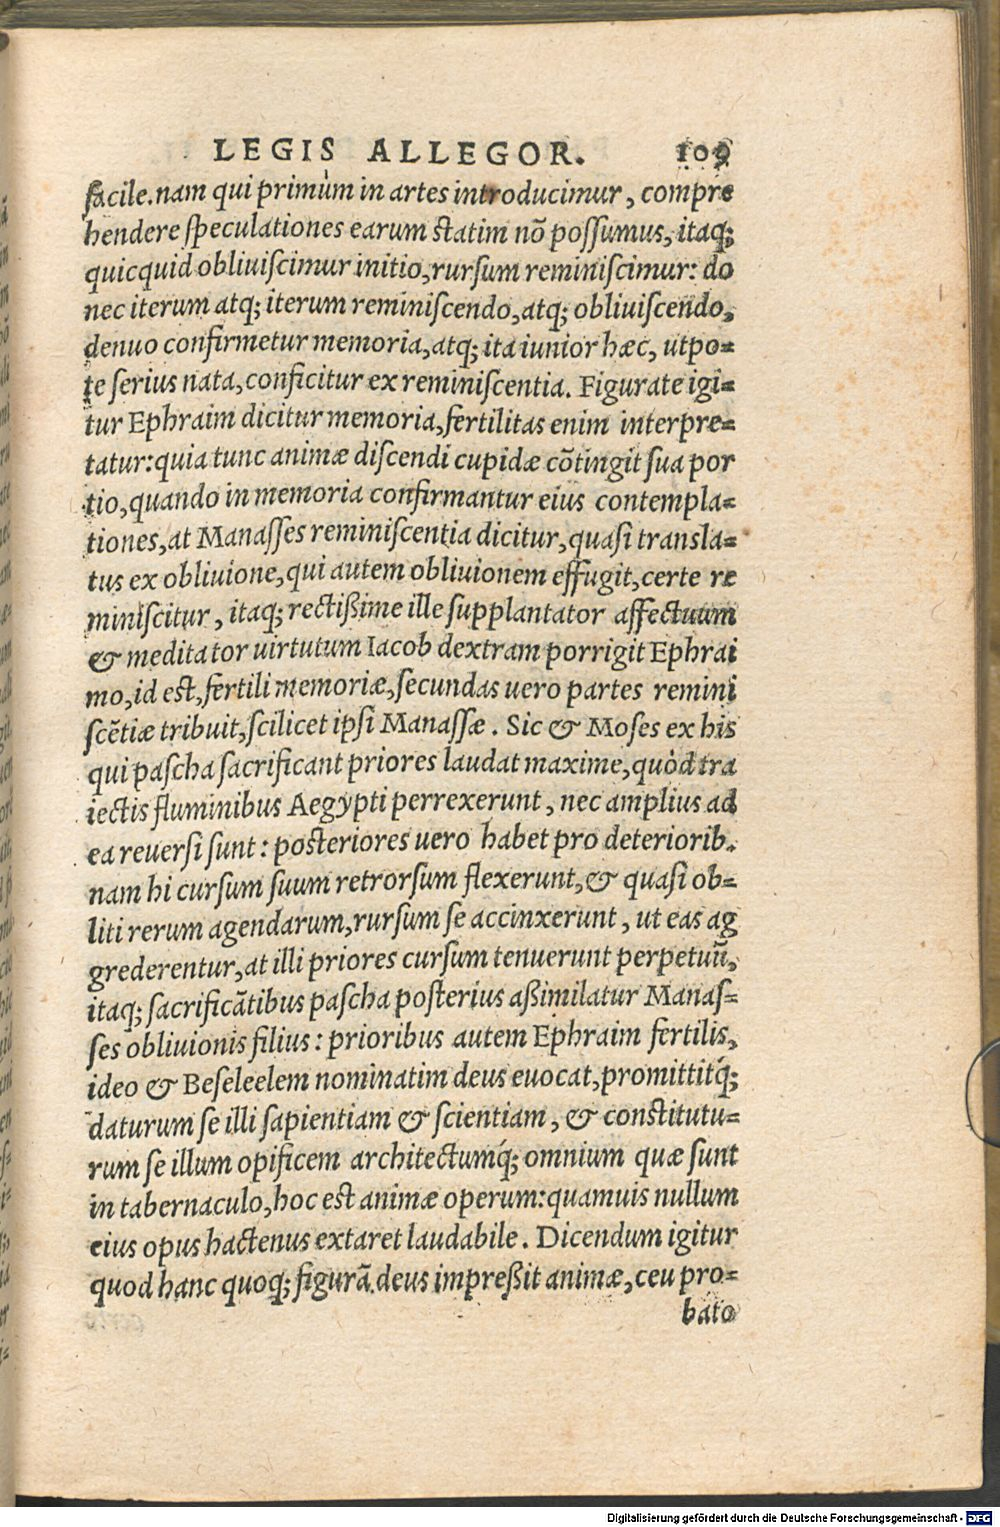 LEGIS ALLEGOR. 109
facile. nam qui primùm in artes introducimur, compre
hendere ſpeculationes earum statim nõ poſſumus, itaq;
quicquid obliuiſcimur initio, rurſum reminiſcimur: do
nec iterum atq; iterum reminiſcendo, atq; obliuiſcendo,
denuo confirmetur memoria, atq; ita iunior hæc, utpo=
te ſerius nata, conficitur ex reminiſcentia. Figurate igi=
tur Ephraim dicitur memoria, fertilitas enim interpre=
tatur: quia tunc animæ diſcendi cupidæ cõtingit ſua por
tio, quando in memoria confirmantur eius contempla=
tiones, at Manaſſes reminiſcentia dicitur, quaſi transla=
tus ex obliuione, qui autem obliuionem effugit, certe re
miniſcitur, itaq; rectißime ille ſupplantator affectuum
& meditator uirtutum Iacob dextram porrigit Ephrai
mo, id est, fertili memoriæ, ſecundas uero partes remini
ſcẽtiæ tribuit, ſcilicet ipſi Manaſſæ. Sic & Moſes ex his
qui paſcha ſacrificant priores laudat maxime, quòd tra
iectis fluminibus Aegypti perrexerunt, nec amplius ad
ea reuerſi ſunt: posteriores uero habet pro deteriorib.
nam hi curſum ſuum retrorſum flexerunt, & quaſi ob=
liti rerum agendarum, rurſum ſe accinxerunt, ut eas ag
grederentur, at illi priores curſum tenuerunt perpetuũ,
itaq; ſacrificãtibus paſcha posterius aßimilatur Manaſ=
ſes obliuionis filius: prioribus autem Ephraim fertilis,
ideo & Beſeleelem nominatim deus euocat, promittitq́;
daturum ſe illi ſapientiam & ſcientiam, & constitutu=
rum ſe illum opificem architectumq́; omnium quæ ſunt
in tabernaculo, hoc est animæ operum: quamuis nullum
eius opus hactenus extaret laudabile. Dicendum igitur
quod hanc quoq; figurã deus impreßit animæ, ceu pro=
bato
Digitalisierung gefördert durch die Deutsche Forschungsgemeinschaft - DFG